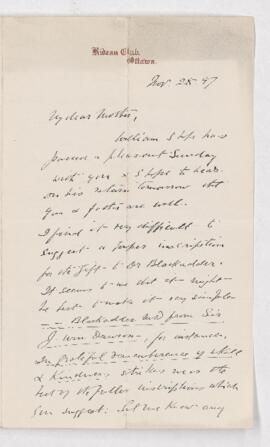 Rideau Club,
Ottawa.
Nov. 28 97
My dear Mother,
William I hope has
passed a pleasant Sunday
with you & I hope to hear
on his return tomorrow that
you & father are well.
I find it very difficult to
suggest a proper inscription
for the gift to Dr Blackader.
It seems to me that it might
be best to make it very simple
— Blackader M.D. from Sir
J. Wm Dawson — for instance.
In grateful remembrance of skill
& kindness strikes me as the
best of the fuller inscriptions which
you suggest. Let me know any